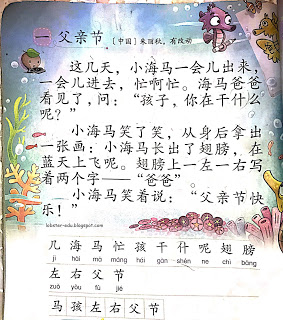 一 父亲节 〔中国〕朱丽秋，有改动
这几天，小海马一会儿出来，
一会儿进去，忙啊忙。海马爸爸
看见了，问：“孩子，你在干什么
呢？”
小海马笑了笑，从身后拿出
一张画：小海马长出了翅膀，在
蓝天上飞呢。翅膀上一左一右写
着两个字——“爸爸”。
小海马笑着说：“父亲节快
乐！”
lobster-edu.blogspot.com
几 海 马 忙 孩 干 什 呢 翅 膀
jǐ hǎi mǎ máng hái gàn shén ne chì bǎng
左 右 父 节
zuǒ yòu fù jié
马 孩 左 右 父 节